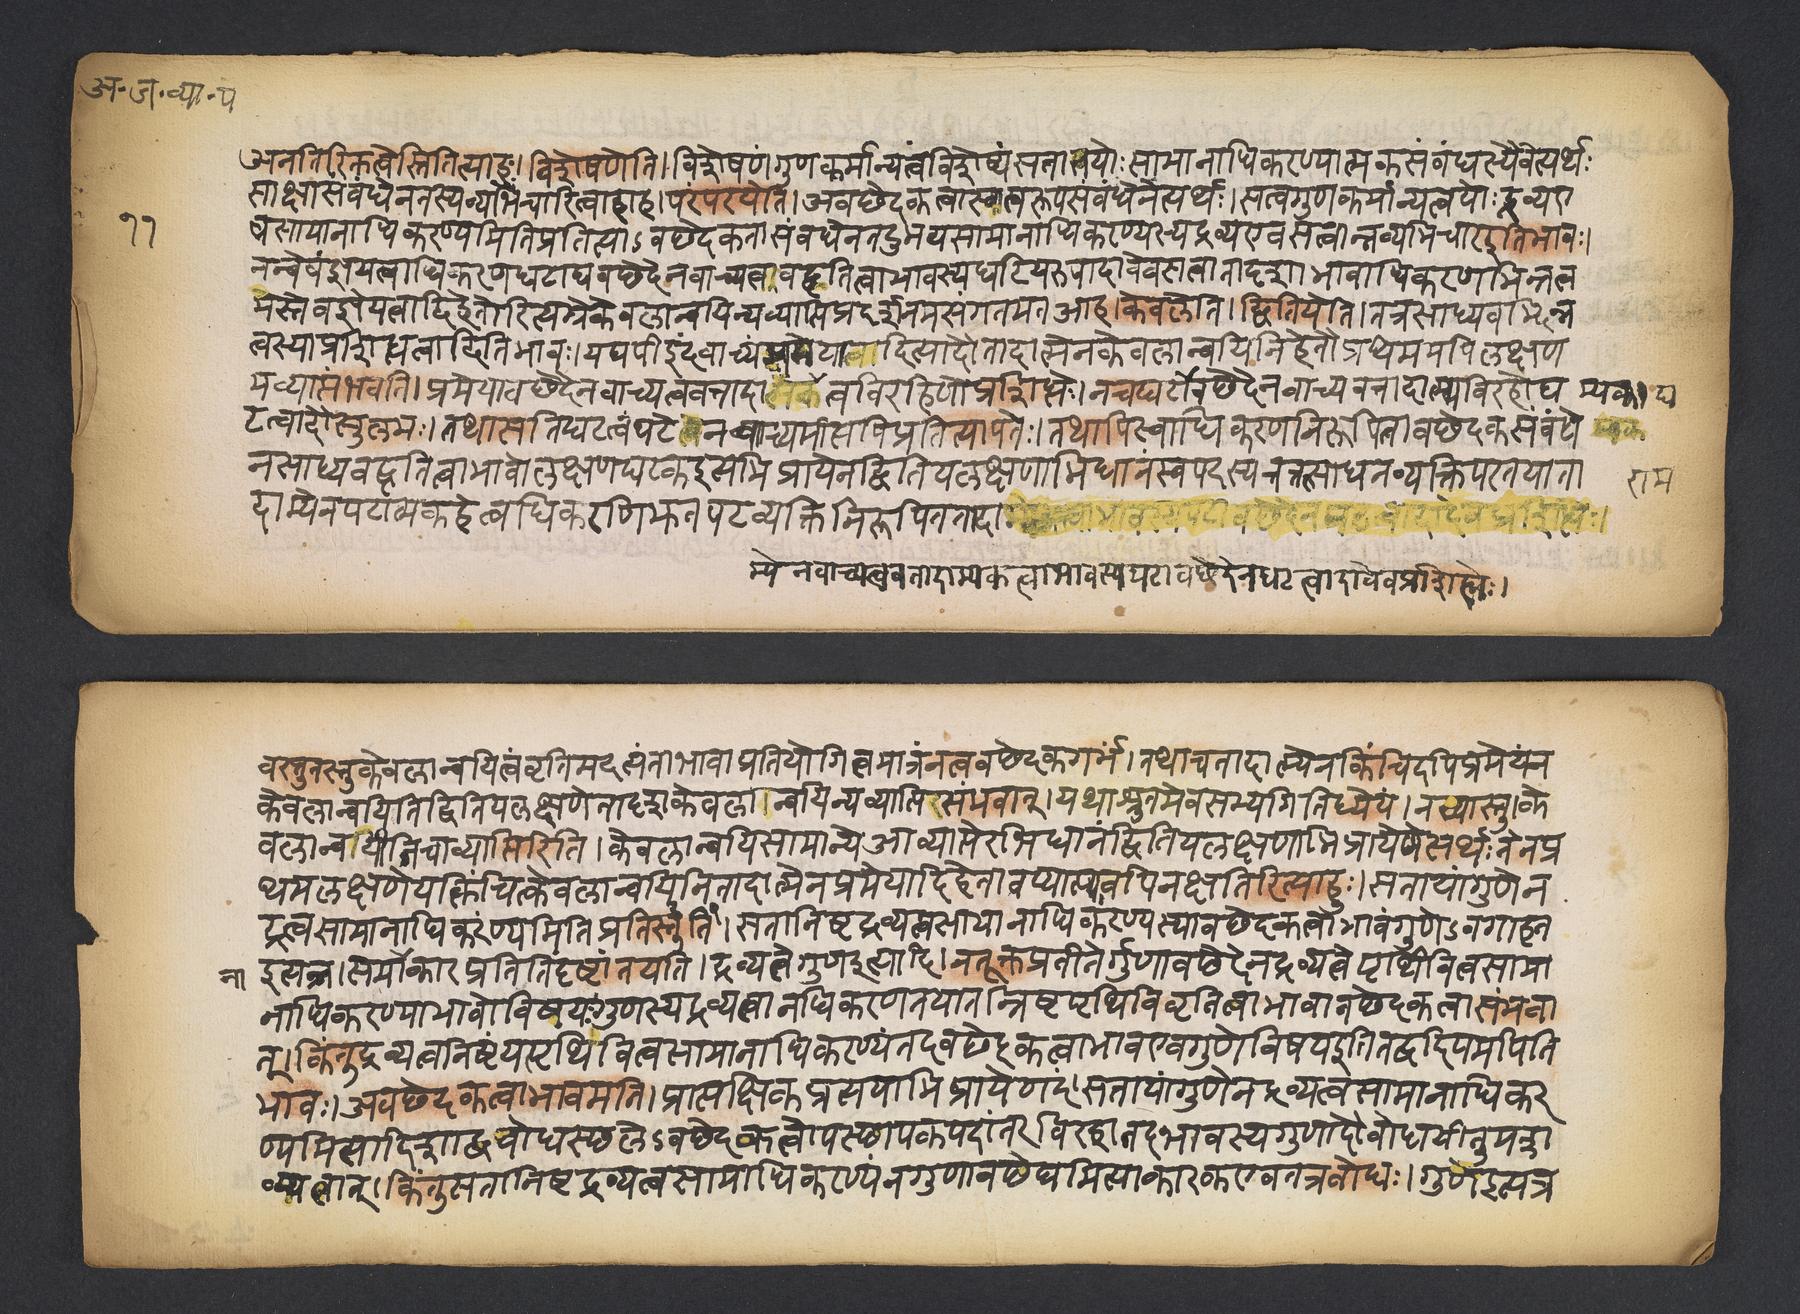 अ·ज·व्या·प
११
अनतिरिक्तत्वेस्त्वितित्याहुः। विशेषणेति। विशेषणं गुणकर्मान्यत्वंविशेष्यं सत्ता तयोः सामानाधिकरण्यात्मकसंबंधस्यैवेत्यर्थः
साक्षात्संबंधेनतस्यव्यभिचारित्वादाह। परंपरयेति। अवछेदकत्वास्वात्वरूपसंबंधेनेत्यर्थः। सत्वगुणकर्मान्यत्वयोः द्रव्यए
वसामानाधिकरण्यमितिप्रतित्याऽवछेदकतासंबंधेनतदुभयसामानाधिकरण्यस्यद्रव्यएवसत्वान्नव्यभिचारइतिभावः।
नन्वेवंज्ञेयत्वाधिकरणघटाद्यवछेदेनवाच्यत्ववद्वृतित्वाभावस्यघटियरूपादावेवसत्वातादृशाभावाधिकरणभिन्नत्व
मस्त्येवज्ञेयत्वादिहेतोरित्यग्रेकेवलान्वयिन्यव्याप्तिप्रदर्शनमसंगतमत आह। केवलेति। द्वितियेति। तत्रसाध्यवभिन्न
त्वस्याप्रशिद्धत्वादितिभावः। यद्यपीइदंवाच्यंप्रमेयत्वादित्यादौतादात्म्येनकेवलान्वयिनिहेतौप्रथममपिलक्षण
मव्याप्तंभवति। प्रमेयावछेदेनवाच्यत्ववत्तादात्म्यकत्वविरहिणोप्रशिद्धेः। नचघटावछेदेनवाच्यवत्तादात्म्यविरहोघ
म्यका। घ
टत्वादौसुलभः। तथासतिघटत्वंपटेनवाच्यमित्यपिप्रतित्यापत्तेः। तथापिस्वाधिकरणनिरूपितावछेदकसंबंधे
नसाध्यवद्वृतित्वाभावोलक्षणघटकइत्यभिप्रायेनद्वितियलक्षणाभिधानंस्वपदस्यचतत्साधनव्यक्तिपरतयाता
राम
दात्म्येनपटात्मकहेत्वधिकरणिभूतपटव्यक्तिनिरूपिततादा
म्येनवाच्यत्ववत्तादात्म्यकत्वाभावस्यपटावछेदेनघटत्वादावेवप्रशिद्धेः।
वस्तुतस्तुकेवलान्वयित्वंवृतिमदत्यंताभावाप्रतियोगित्वमात्रंनत्ववछेदकगर्भं। तथाचतादात्म्येनकिंचिदपिप्रमेयंन
केवलान्वयितिद्वितियलक्षणेतादृशकेवलान्वयिन्यव्याप्तिरसंभवात्। यथाश्रुतमेवसम्यगितिध्येयं। नव्यास्तु। के
वलान्वयिनिचाव्याप्तिरिति। केवलान्वयिसामान्येअव्याप्तेरभिधानंद्वितियलक्षणाभिप्रायेणेत्यर्थः तेनप्र
थमलक्षणेयत्किंचित्केवलान्वयिनितादात्म्येनप्रमेयादिहेतावव्याप्त्यावपिनक्षतिरित्याहुः। सत्तायांगुणेन
द्रत्वसामानाधिकरण्यमितिप्रतिस्तुति। सत्तानिष्टद्रव्यत्वसामानाधिकरण्यस्यावछेदकत्वाभावंगुणेऽवगाहत
इत्यन्न। समाकारप्रतितिंदृष्टांतयति। द्रव्यत्वेगुणइत्यादि। नतूक्तप्रतीतेर्गुणावछेदेनद्रव्यत्वेपृथिवीत्वसामा
ना
नाधिकरण्याभावोविषयः गुणस्यद्रव्यत्वानधिकरणतयातन्निष्टपृथिवित्वृत्तित्वाभावानवछेदकत्वासंभवा
त्। किंतुद्रव्यत्वनिष्टंयत्पृथिवित्वसामानाधिकरण्यंतदवछेदकत्वाभावएवगुणेविषयइतितद्वदियमपिति
भावः। अवछेदकत्वाभावमिति। प्रात्यक्षिकप्रत्ययाभिप्रायेणदं। सत्तायांगुणेनद्रव्यत्वसामानाधिकर
ण्यमित्यादिशाब्दबोधस्छलेऽवछेदकत्वोपस्छापकपदांतरविरहात्तदभावस्यगुणादौबोधयीतुमशा
क्यत्वात्। किंतुसत्तानिष्टद्रव्यत्वसामाधिकरण्यंनगुणावछेद्यमित्याकारकएवतत्रबोधः। गुणेइत्यत्र